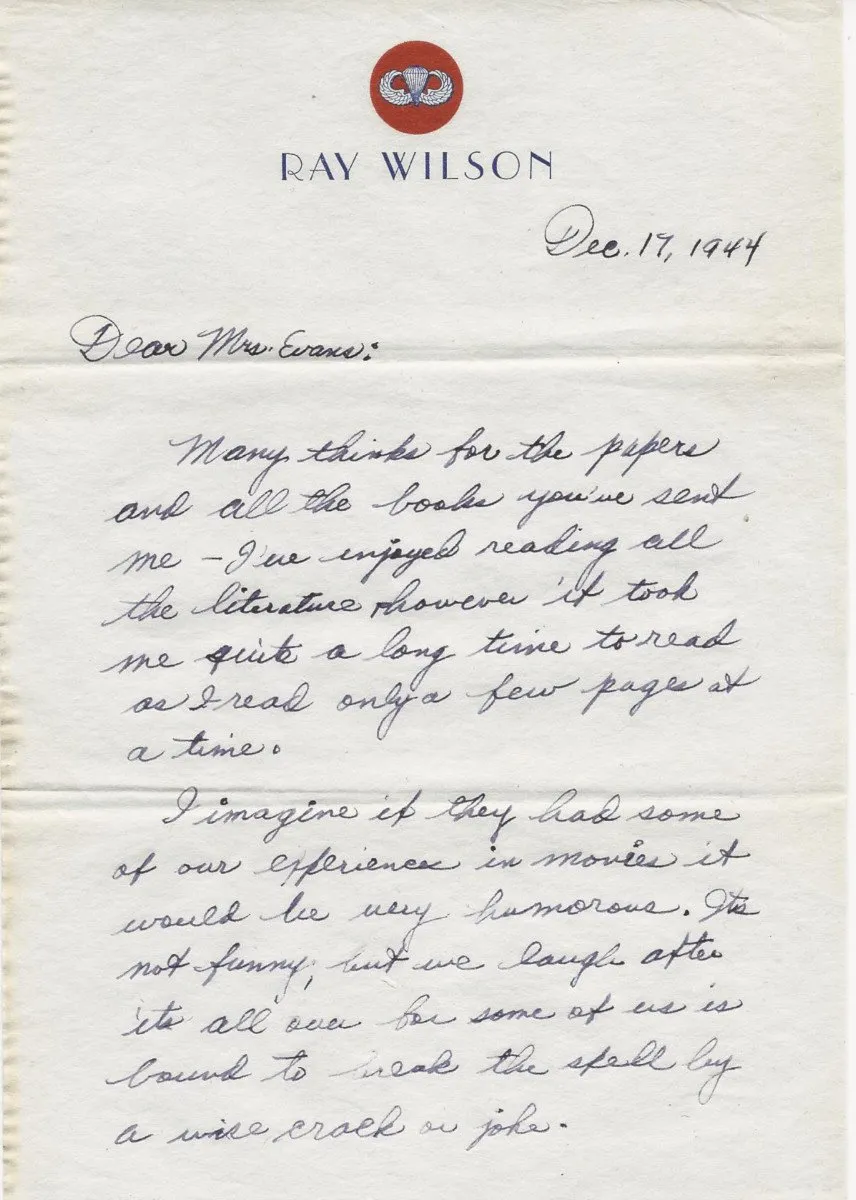 RAY WILSON
Dec. 17, 1944
Dear Mrs. Evans:
Many thinks for the papers
and all the books you've sent
me – I've enjoyed reading all
the literature, however it took
me quite a long time to read
as I read only a few pages at
a time.
I imagine if they had some
of our experiences in movies it
would be very humorous. Its
not funny, but we laugh after
its all over for some of us is
bound to break the spell by
a wise crack or joke.